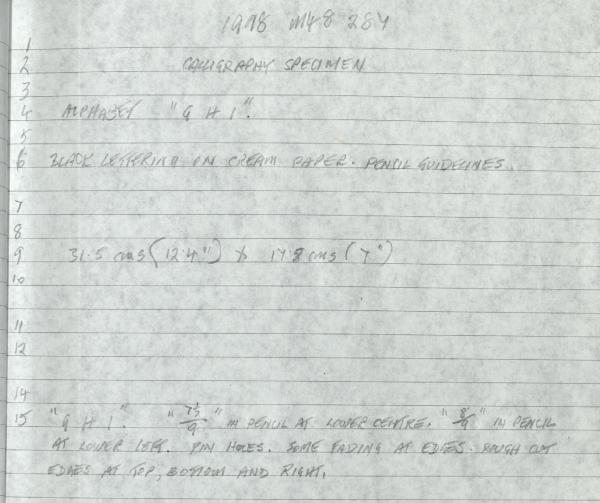 1978 M48 284
1
2 CALLIGRAPHY SPECIMEN
3
4 ALPHABET "G H I".
5
6 BLACK LETTERING ON CREAM PAPER. PENCIL GUIDELINES.
7
8
9 31.5 cms (12.4") x 17.8 cms (7")
10
11
12
14
15 "G H I". " " IN PENCIL AT LOWER CENTRE. "8/9" IN PENCIL
AT LOWER LEFT. PIN HOLES. SOME FADING AT EDGES. ROUGH CUT
EDGES AT TOP, BOTTOM AND RIGHT.